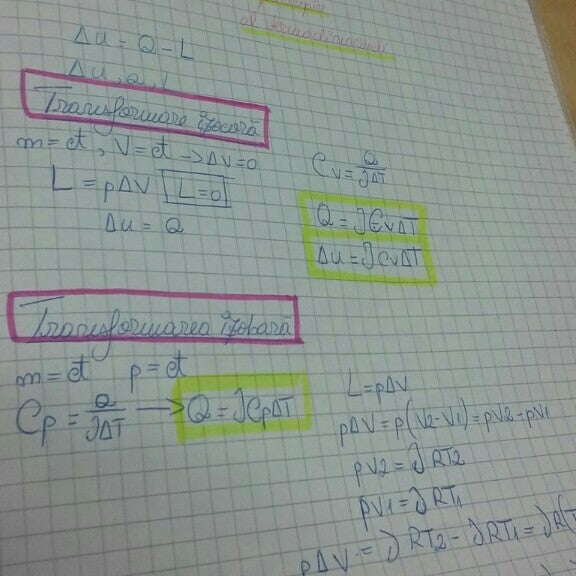 al termodinamicii
ΔU = Q - L
ΔU, Q, L
Transformarea izocoră
m = ct, V = ct → ΔV = 0
L = pΔV L = 0
ΔU = Q
Cv = Q/νΔT
Q = νCvΔT
ΔU = νCvΔT
Transformarea izobară
m = ct p = ct
Cp = Q/νΔT → Q = νCpΔT
L = pΔV
pΔV = p(V2 - V1) = pV2 - pV1
pV2 = νRT2
pV1 = νRT1
pΔV = νRT2 - νRT1 = νR(T